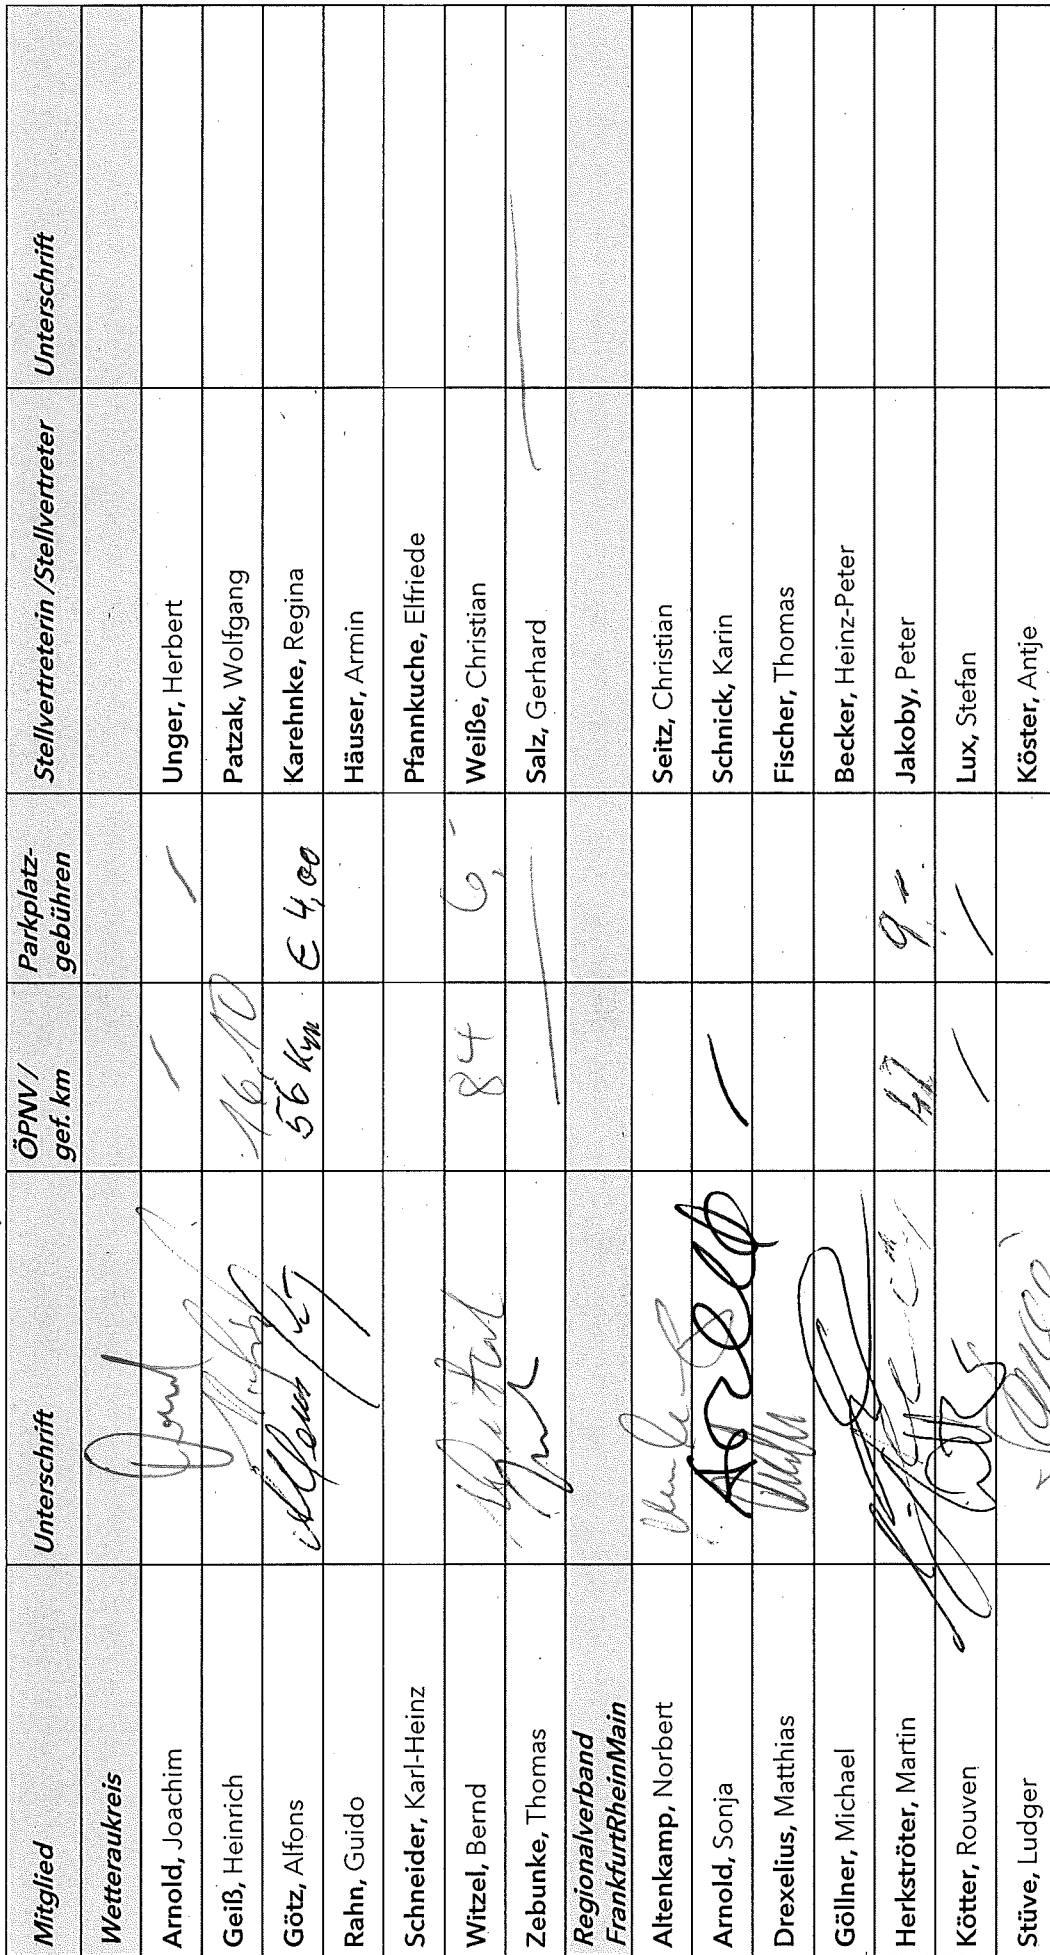 Mitglied Unterschrift ÖPNV / gef. km Parkplatz-gebühren Stellvertreterin /Stellvertreter Unterschrift
Wetteraukreis
Arnold, Joachim / / Unger, Herbert
Geiß, Heinrich 16,10 Patzak, Wolfgang
Götz, Alfons 56 Km € 4,00 Karehnke, Regina
Rahn, Guido Häuser, Armin
Schneider, Karl-Heinz Pfannkuche, Elfriede
Witzel, Bernd 84 6,- Weiße, Christian
Zebunke, Thomas Salz, Gerhard
Regionalverband
FrankfurtRheinMain
Altenkamp, Norbert Seitz, Christian
Arnold, Sonja / Schnick, Karin
Drexelius, Matthias Fischer, Thomas
Göllner, Michael Becker, Heinz-Peter
Herkströter, Martin Jakoby, Peter
Kötter, Rouven / / Lux, Stefan
Stüve, Ludger Köster, Antje